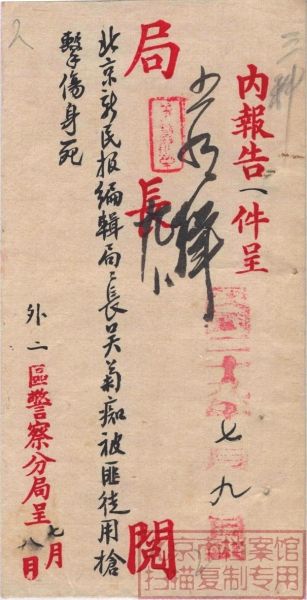 三科
内報告一件呈
七月九
局長閱
北京新民报編輯局長吳菊痴被匪徒用槍
擊傷身死
外二區警察分局呈
七月
八日
京市档案馆
扫描复制专用